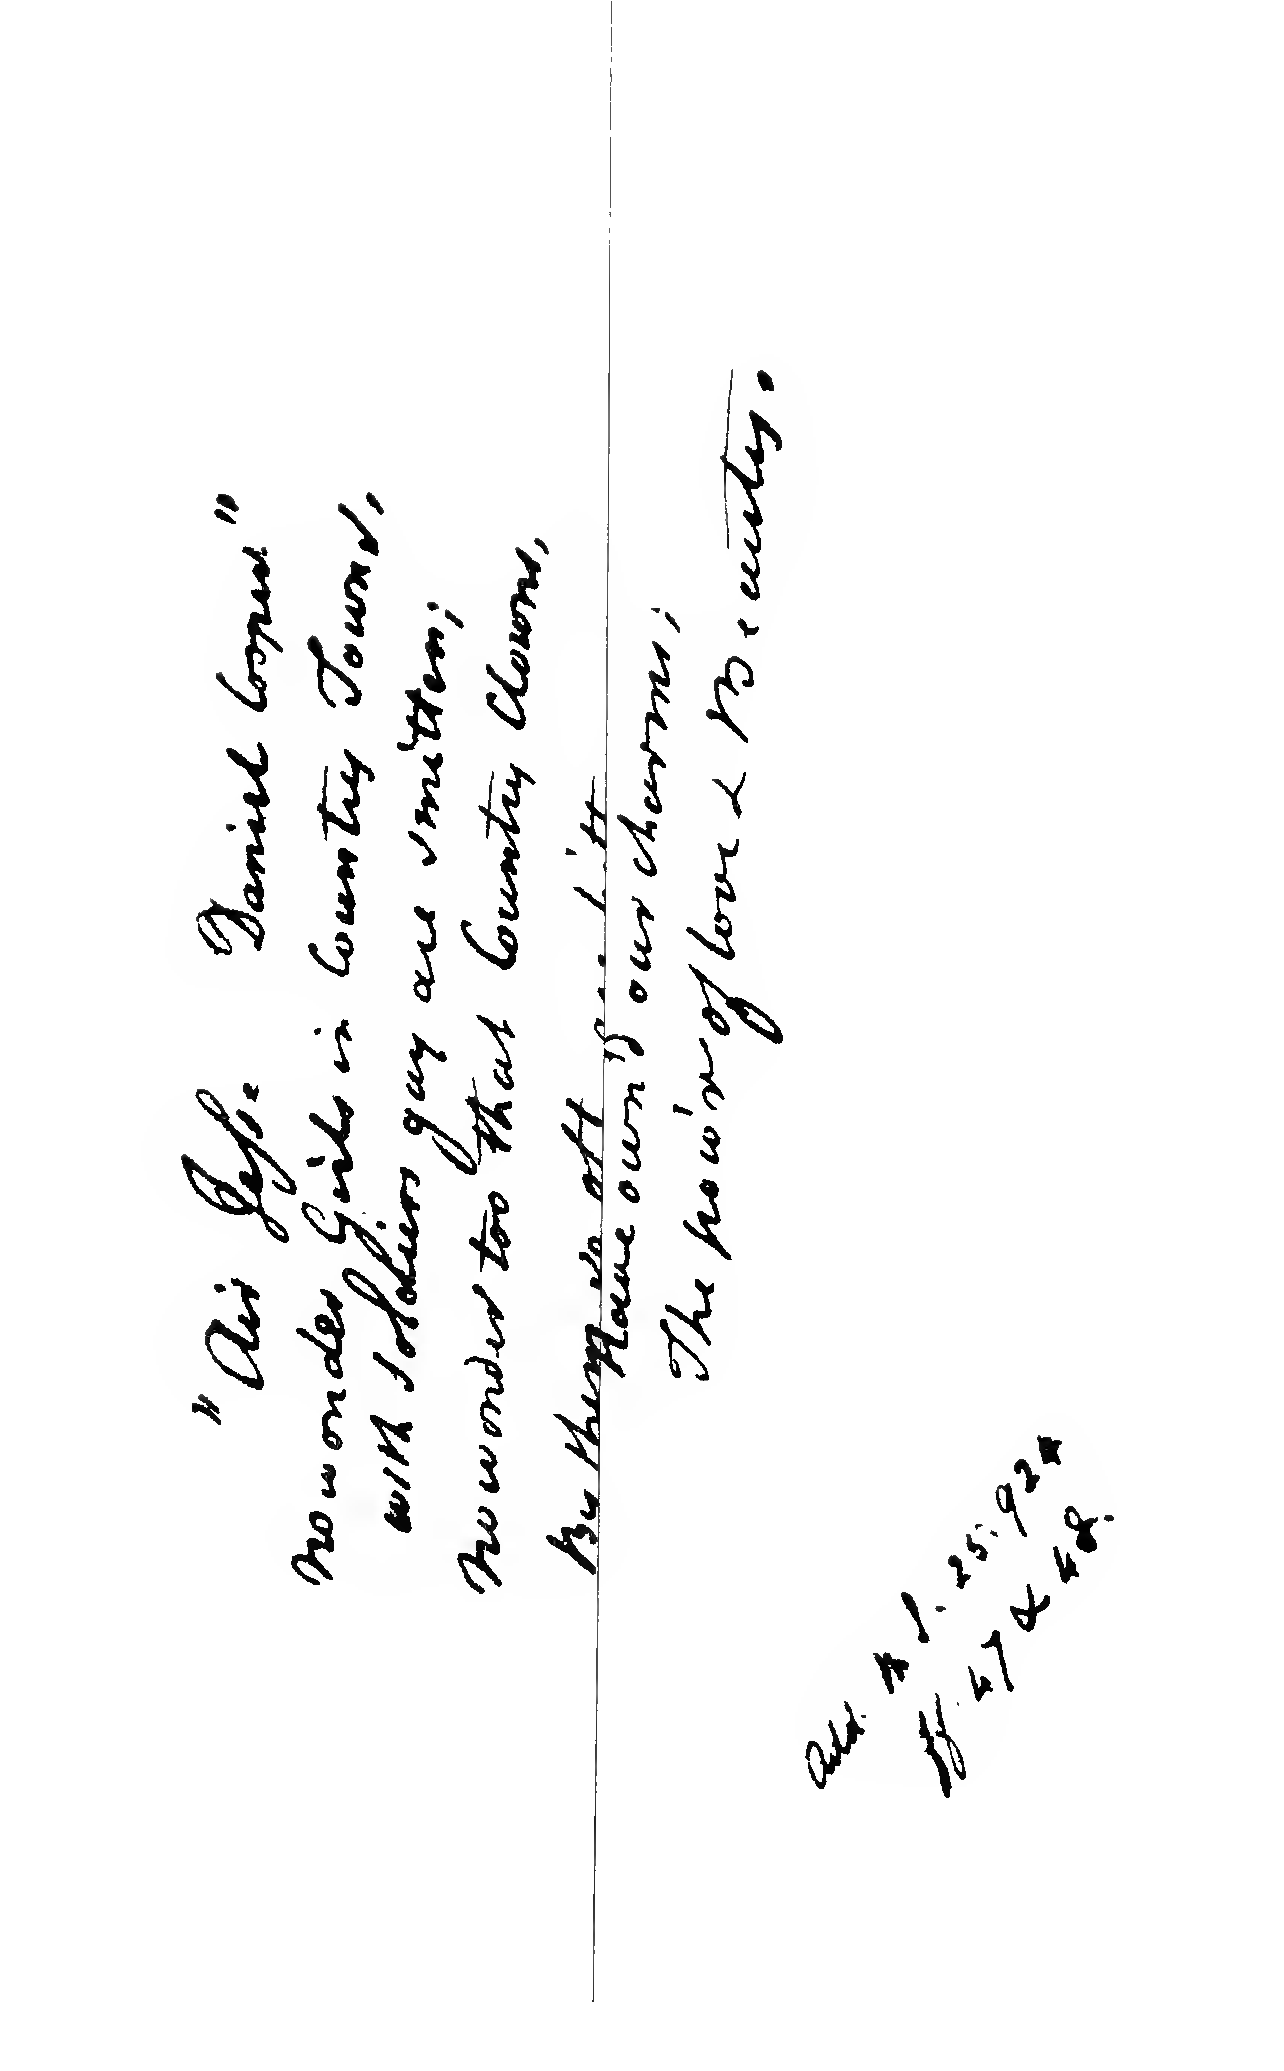 "Air Jesse Daniel Cooper"
No wonder Girls in Country Towns,
with soldiers gay are smitten;
No wonder too that Country Clowns,
By them so oft
Have own'd our charms;
The pow'r of love & Beauty.
Add. 25.92
ff. 47 & 48.